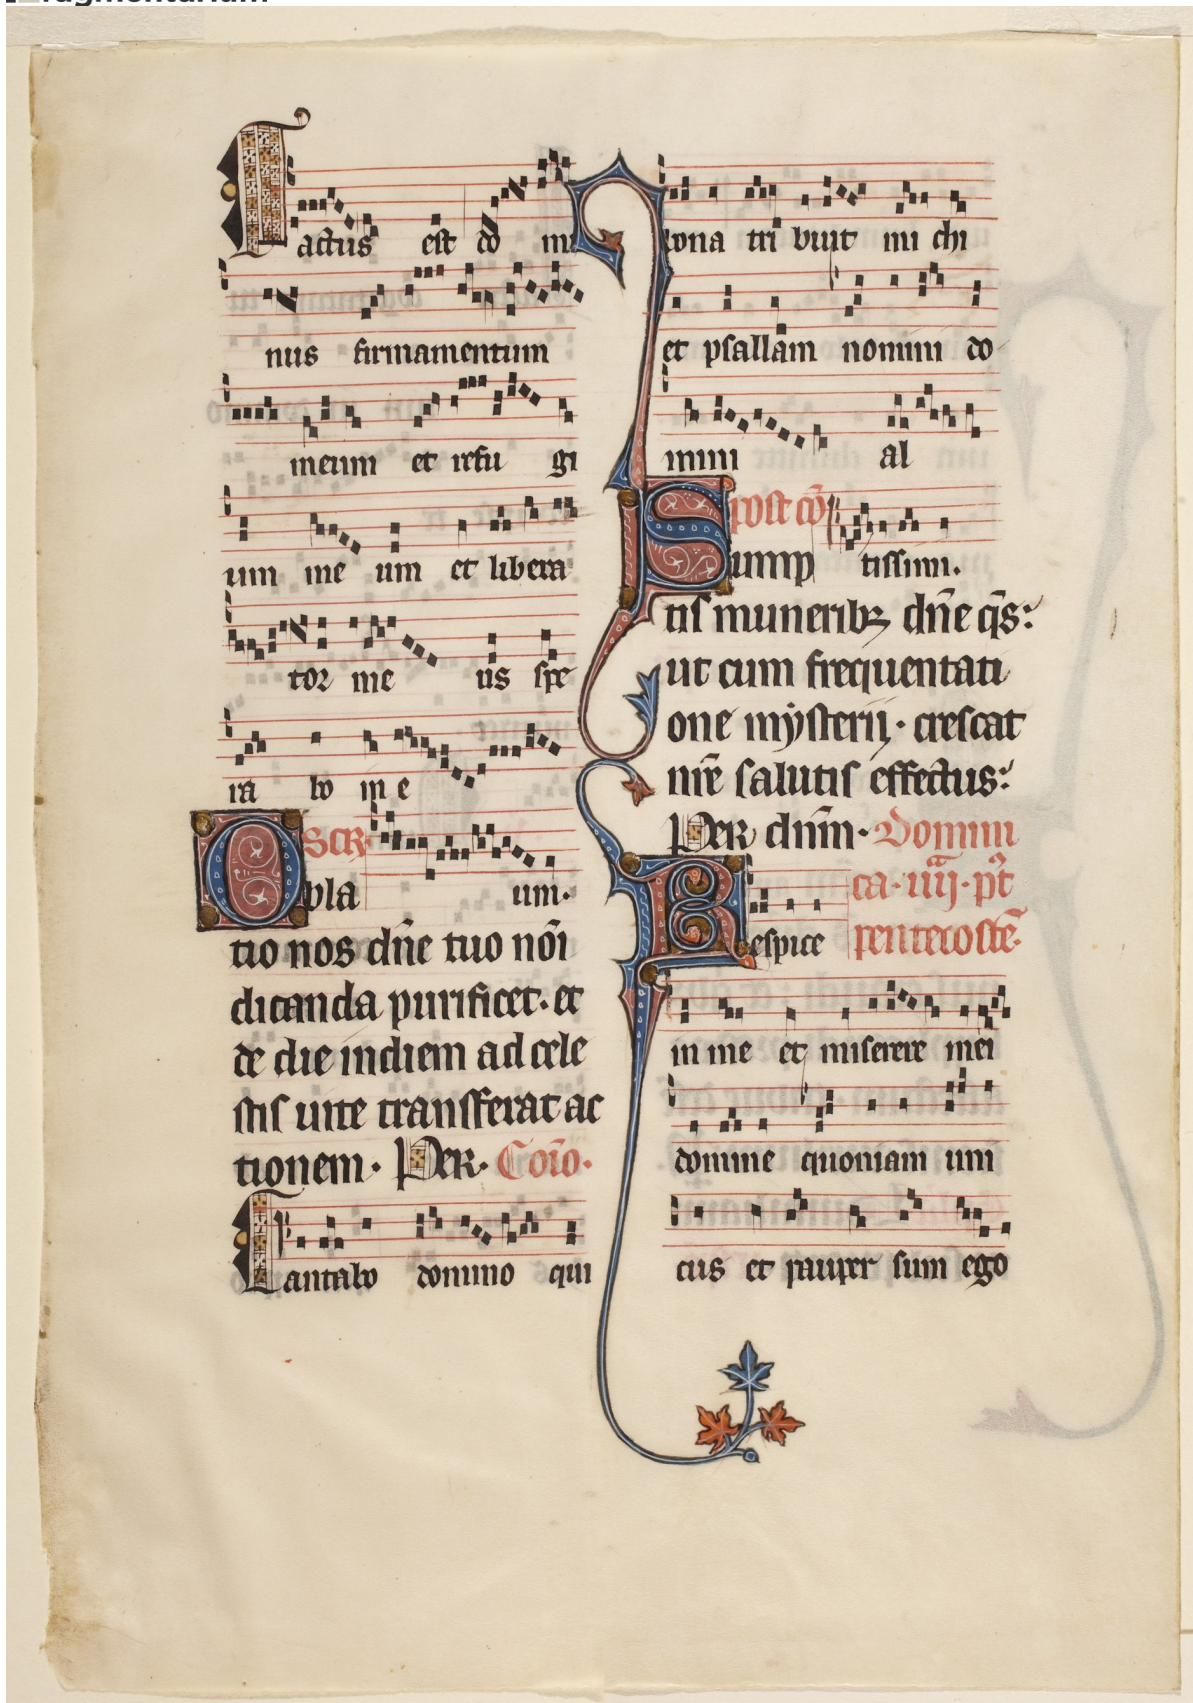 Factus est do mi
nus firmamentum
meum et refu gi
um me um et libera
tor me us spe
ra bo in e
Oscr
pla um.
tio nos dn̄e tuo nōi
dicanda purificet. et
de die indiem ad cele
stis uite transferat ac
tionem. Per. Cōio.
Cantabo domino qui
bona tri buit mi chi
et psallam nomini do
mini al
post cō
Sump tissimi.
tis muneribꝫ dn̄e q̄s:
ut cum frequentati
one mẏsterii. crescat
nr̄e salutis effectus:
Per dn̄m. Domini
ca. iiij. pt
Respice pentecostē.
in me et miserere mei
domine quoniam uni
cus et pauper sum ego